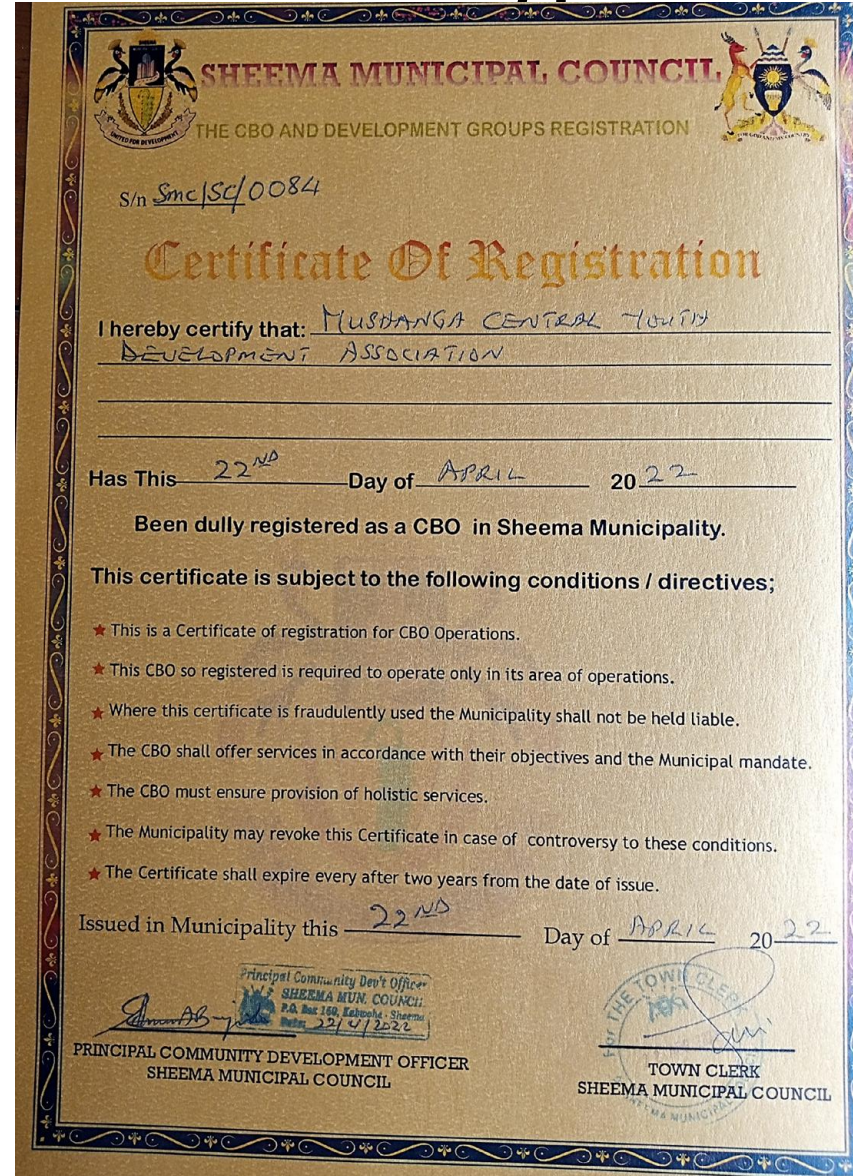 SHEEMA MUNICIPAL COUNCIL
THE CBO AND DEVELOPMENT GROUPS REGISTRATION
UNITED FOR DEVELOPMENT
FOR GOD AND MY COUNTRY
S/n Smc/SC/0084
Certificate Of Registration
I hereby certify that: MUSHANGA CENTRAL YOUTH
DEVELOPMENT ASSOCIATION
Has This 22ND Day of APRIL 2022
Been dully registered as a CBO in Sheema Municipality.
This certificate is subject to the following conditions / directives;
This is a Certificate of registration for CBO Operations.
This CBO so registered is required to operate only in its area of operations.
Where this certificate is fraudulently used the Municipality shall not be held liable.
The CBO shall offer services in accordance with their objectives and the Municipal mandate.
The CBO must ensure provision of holistic services.
The Municipality may revoke this Certificate in case of controversy to these conditions.
The Certificate shall expire every after two years from the date of issue.
Issued in Municipality this 22ND Day of APRIL 2022
Principal Community Dev't Officer
SHEEMA MUN. COUNCIL
P.O. Box 160, Kabwohe - Sheema
Date: 22/4/2022
PRINCIPAL COMMUNITY DEVELOPMENT OFFICER
SHEEMA MUNICIPAL COUNCIL
For THE TOWN CLERK
SHEEMA MUNICIPAL
TOWN CLERK
SHEEMA MUNICIPAL COUNCIL